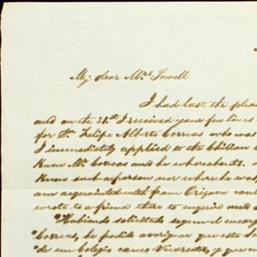 My dear Mrs. Lowell
I had last the plea
and on the 31st I received your favors
for Dr. Felipe Alberto Correas who was
I immediately applied to the Chilian
Know Mr. Correas and he whereabouts.
Know such a person nor where he was,
am acquainted with from Origan
wrote to a friend there to enquire and
"Habiendo solicitado segun el encargo
Correas, he podido averiguar que este
de un Colegio como Vicerector, y que